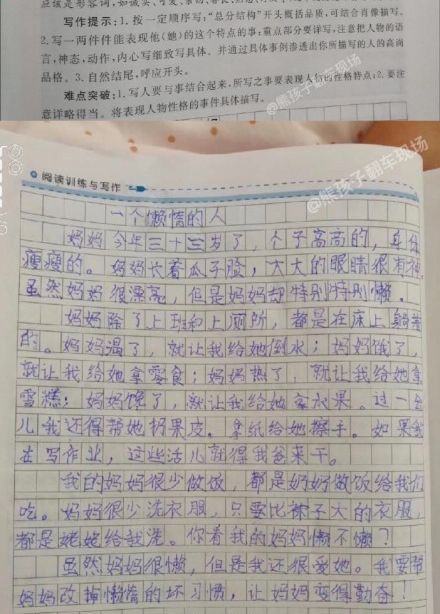 应该是形容词,如诚实、可爱、
写作提示:1.按一定顺序写,“总分结构”开头概括品质,可结合肖像描写。
2.写一两件件能表现他(她)的这个特点的事;重点部分要详写,注意把人物的语
言,神态,动作,内心写细致写具体。并通过具体事例渗透出你所描写的人的高尚
品格。3.自然结尾,呼应开头。
难点突破:1.写人要与事结合起来,所写之事要表现人物的性格特点;2.要注
意详略得当。将表现人物性格的事件具体描写。
@熊孩子翻车现场
阅读训练与写作
@熊孩子翻车现场
一个懒惰的人
妈妈今年三十三岁了,个子高高的,身体
瘦瘦的。妈妈长着瓜子脸,大大的眼睛很有神。
虽然妈妈很漂亮,但是妈妈却特别特别懒。
妈妈除了上班和上厕所,都是在床上躺着
的。妈妈渴了,就让我给她倒水;妈妈饿了,
就让我给她拿零食;妈妈热了,就让我给她拿
雪糕;妈妈馋了,就让我给她拿水果。过一会
儿我还得帮她扔果皮。拿纸给她擦手。如果我
在写作业,这些活儿就得我爸来干。
我的妈妈很少做饭,都是奶奶做饭给我们
吃。妈妈很少洗衣服,只要比裤子大的衣服,
都是姥姥给我洗。你看我的妈妈懒不懒?
虽然妈妈很懒,但是我还很爱她。我要帮
妈妈改掉懒惰的坏习惯,让妈妈变得勤奋!